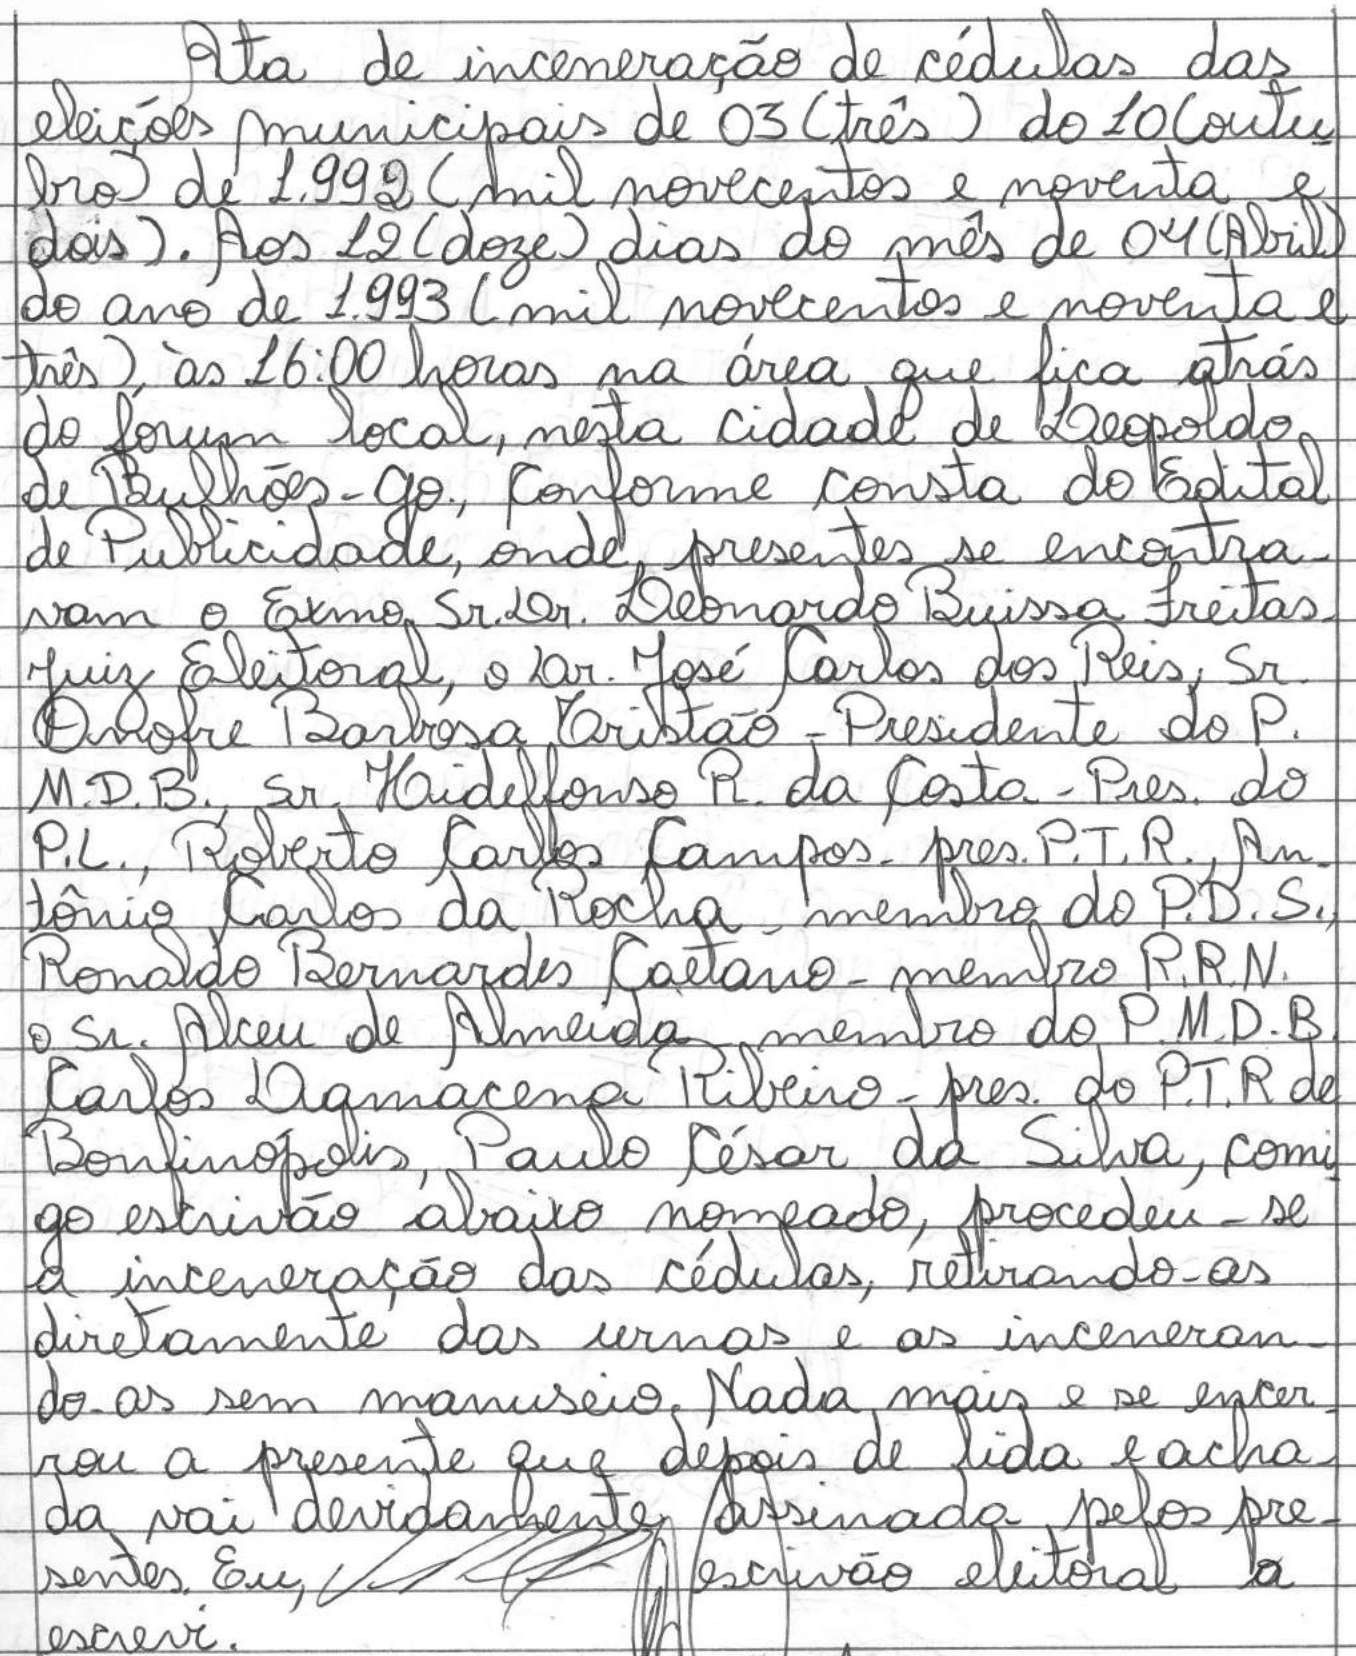 Ata de inceneração de cédulas das
eleições municipais de 03 (três) do 10 (outu
bro) de 1.992 (mil novecentos e noventa e
dois). Aos 12 (doze) dias do mês de 04 (Abril)
do ano de 1.993 (mil novecentos e noventa e
três), às 16:00 horas na área que fica atrás
do fórum local, nesta cidade de Leopoldo
de Bulhões-Go., Conforme consta do Edital
de Publicidade, onde presentes se encontra-
vam o Exmo Sr. Dr. Leonardo Buissa Freitas
Juiz Eleitoral, o Dr. José Carlos dos Reis, Sr.
Onofre Barbosa Tristão - Presidente do P.
M.D.B., Sr. Hidelfonso R. da Costa - Pres. do
P.L., Roberto Carlos Campos - pres. P.T.R., An-
tônio Carlos da Rocha - membro do P.D.S.,
Ronaldo Bernardes Caetano - membro P.R.N.
o Sr. Alceu de Almeida membro do P.M.D.B.
Carlos Damacena Ribeiro - pres. do P.T.R de
Bonfinópolis, Paulo César da Silva, comi
go escrivão abaixo nomeado, procedeu-se
a inceneração das cédulas, retirando-as
diretamente das urnas e as inceneran-
do-as sem manuseio. Nada mais e se encer
rou a presente que depois de lida e acha-
da vai devidamente assinada pelos pre-
sentes. Eu, escrivão eleitoral a
escrevi.